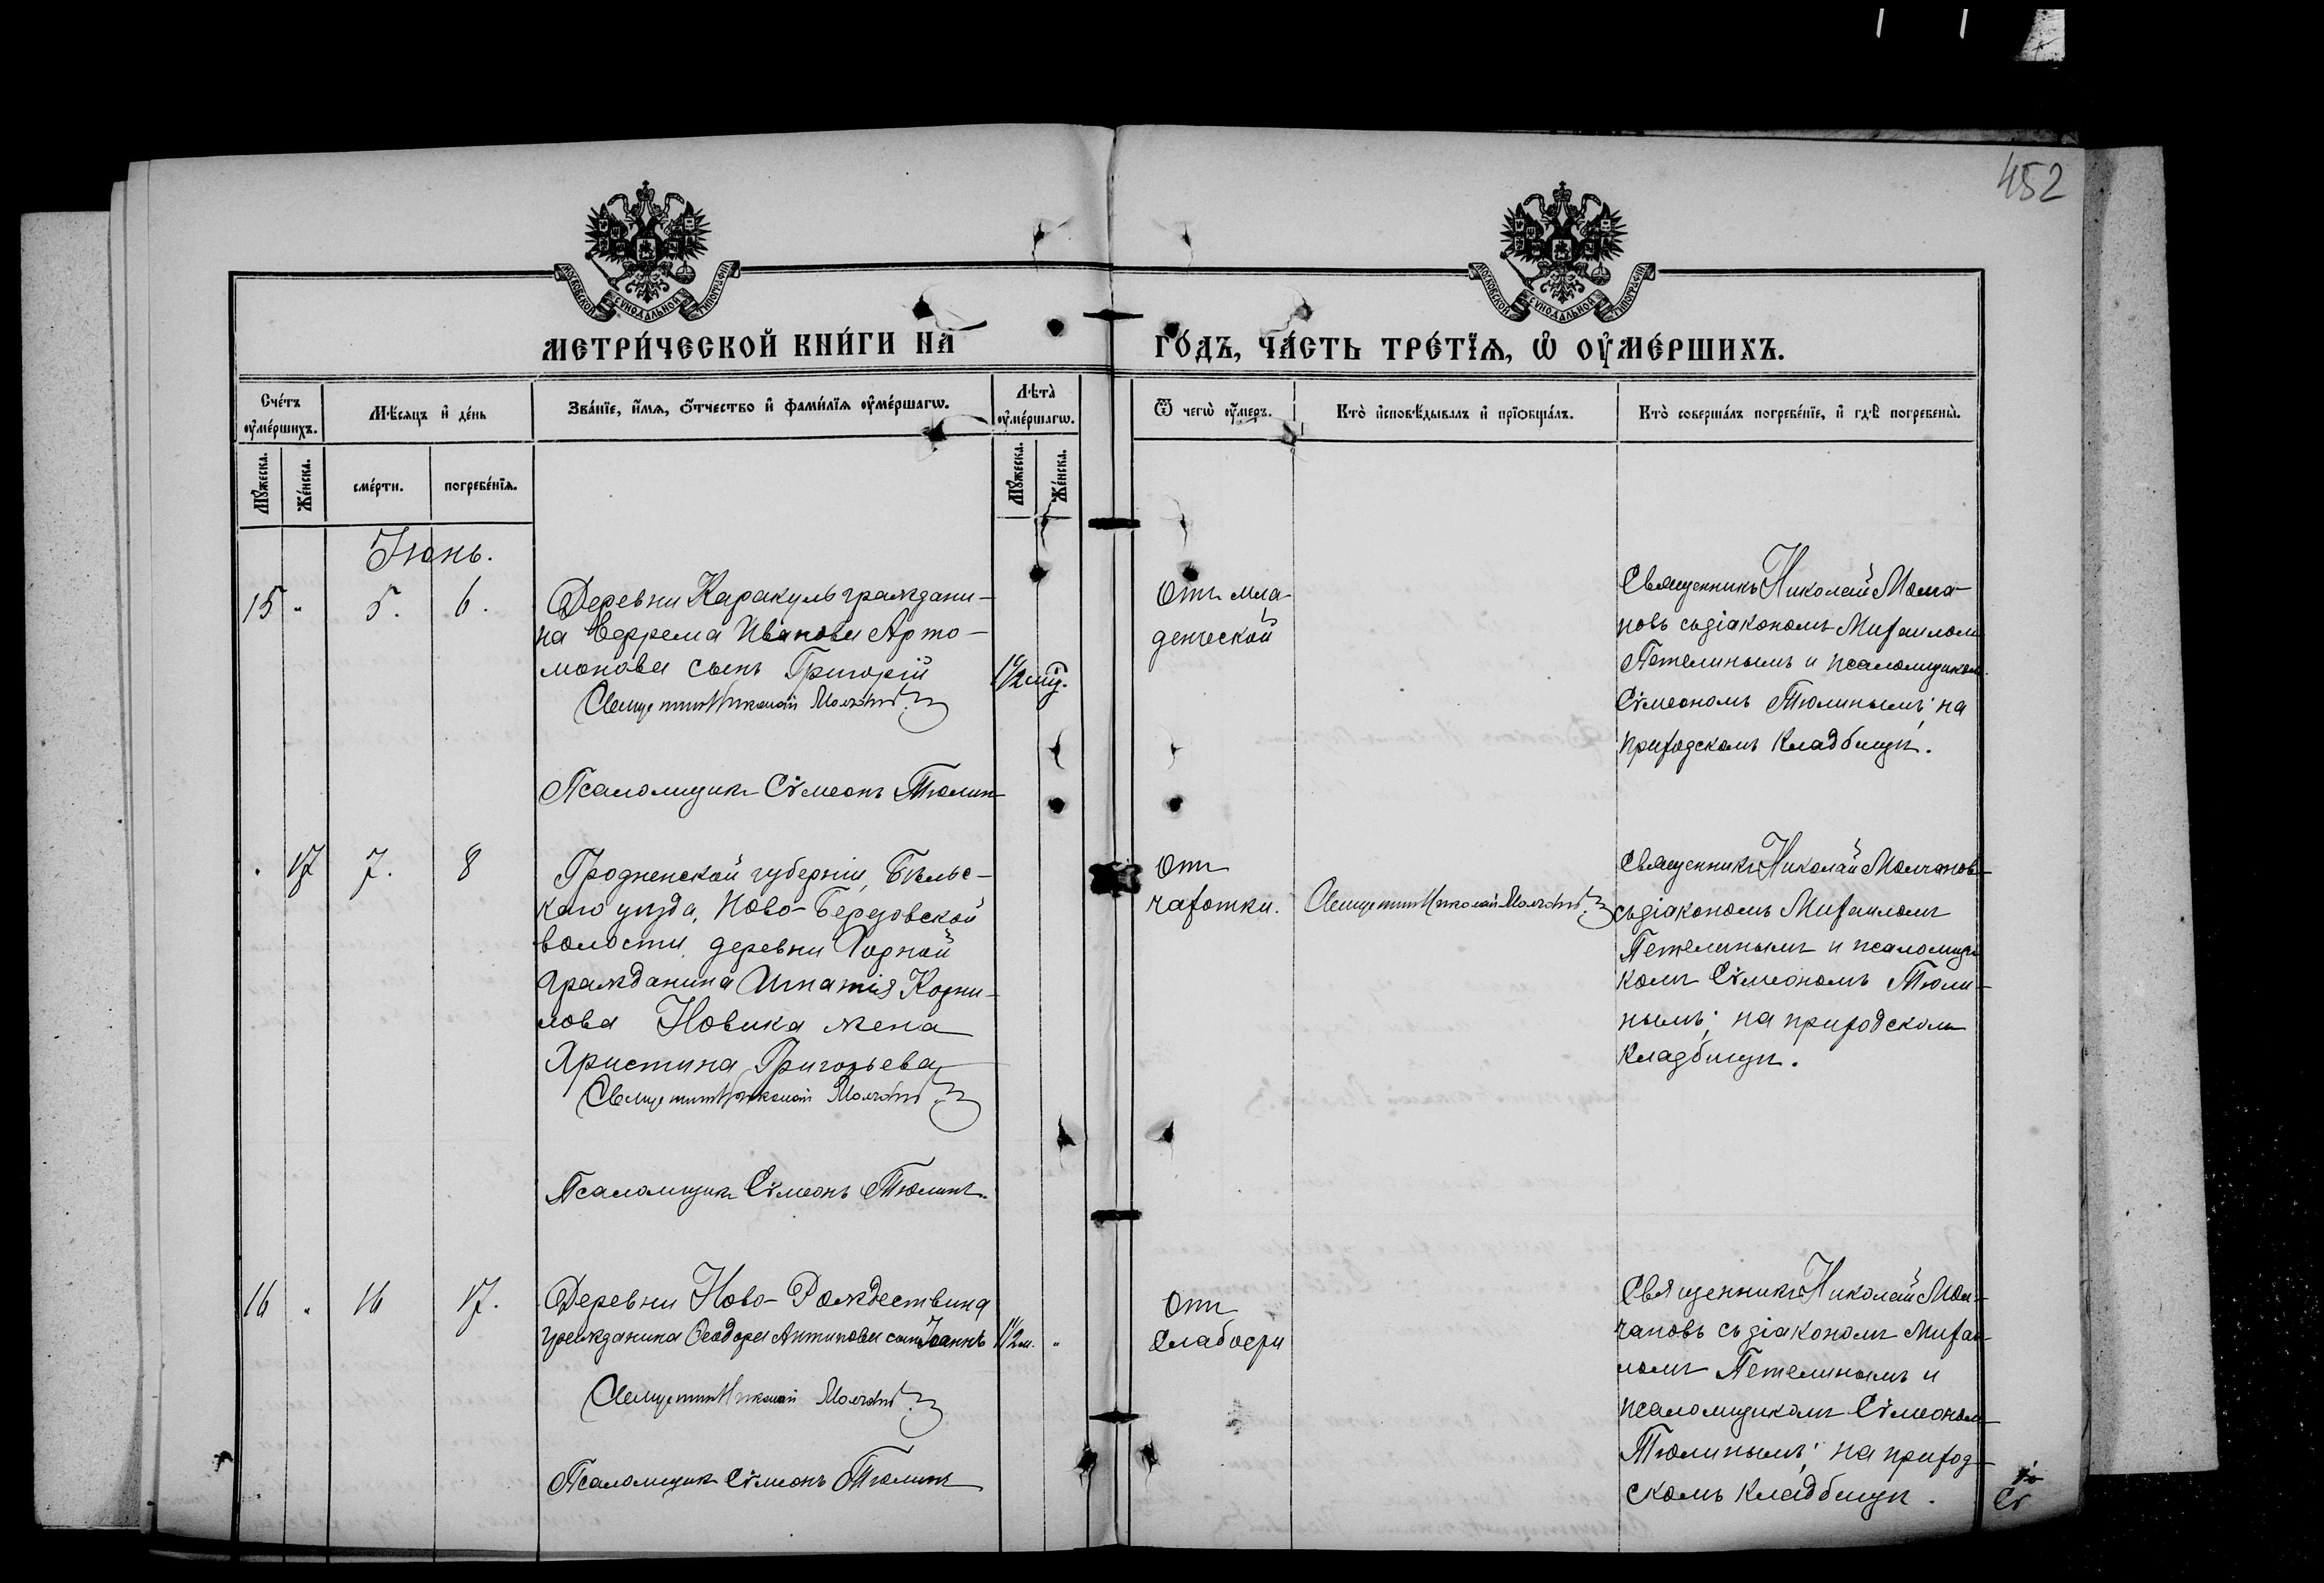 452
МОСКОВСКОЙ СѴНОДАЛЬНОЙ ТИПОГРАФІИ
МОСКОВСКОЙ СѴНОДАЛЬНОЙ ТИПОГРАФІИ
МЕТРИ́ЧЕСКОЙ КНИ́ГИ НА
ГО́ДЪ, ЧА́СТЬ ТРЕ́ТЇѦ, Ѡ ОУМЕ́РШИХЪ.
Сче́тъ оумéршихъ.
Мѣ́сяцъ и де́нь
Зва́нїе, и́мѧ, ѻ́тчество и фами́лїѧ оуме́ршагѡ.
Лѣта̀ оуме́ршагѡ.
Ѿ чегѡ̀ оу́меръ.
Кто̀ исповѣ́дывалъ и прїѻбща́лъ.
Кто̀ соверша́лъ погребе́нїе, и гдѣ̀ погребены̀.
Мꙋ́жеска.
Же́нска.
сме́рти.
погребе́нїѧ.
Мꙋ́жеска.
Же́нска.
Іюнь.
15 „ 5. 6.
Деревни Каракуль граждани-
на Ефрема Иванова Арто-
монова сынъ Григорій
Священникъ Николай Молчановъ
Псаломщикъ Сѵмеонъ Тюлин
1½
Отъ мла-
денческой
Священникъ Николай Молча-
новъ съ діакономъ Михаиломъ
Петелинымъ и псаломщикомъ
Сѵмеономъ Тюлинымъ; на
приходскомъ кладбищѣ.
. 17 7. 8
Гродненской губерніи, Бѣльс-
каго уѣзда, Ново-Березовской
волости, деревни Горной
гражданина Игнатія Корни-
лова Новика жена
Христина Григорьева
Священникъ Николай Молчановъ
Псаломщикъ Сѵмеонъ Тюлинъ.
Отъ
чахотки.
Священникъ Николай Молчановъ
Священникъ Николай Молчановъ
съ діакономъ Михаиломъ
Петелинымъ и псаломщи-
комъ Сѵмеономъ Тюли-
нымъ; на приходскомъ
кладбищѣ.
16 „ 16 17.
Деревни Ново-Рождествина
гражданина Ѳеодора Антипова сынъ Іоаннъ
1½ м. „
Священникъ Николай Молчановъ
Псаломщикъ Сѵмеонъ Тюлинъ
Отъ
слабости
Священникъ Николай Мол-
чановъ съ діакономъ Михаи-
ломъ Петелинымъ и
псаломщикомъ Сѵмеономъ
Тюлинымъ; на приход-
скомъ кладбищѣ.
Сѵ